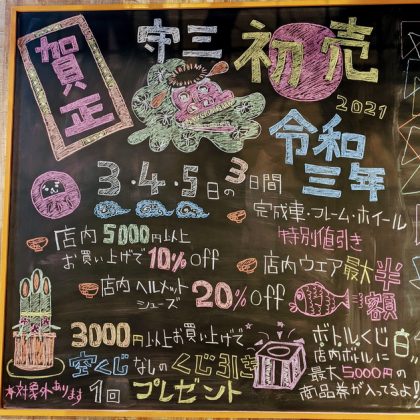 賀正
守三
初売
2021
令和
三年
3・4・5日の3日間
完成車・フレーム・ホイール
特別値引き
店内5000円以上
お買い上げで10%off
店内ウエア最大半額
店内ヘルメット
シューズ
20%off
3000円以上お買い上げで
空くじなしのくじ引き
1回プレゼント
※対象外あります
ボトルくじ
店内ボトルに
最大5000円の
商品券が入ってるよ!